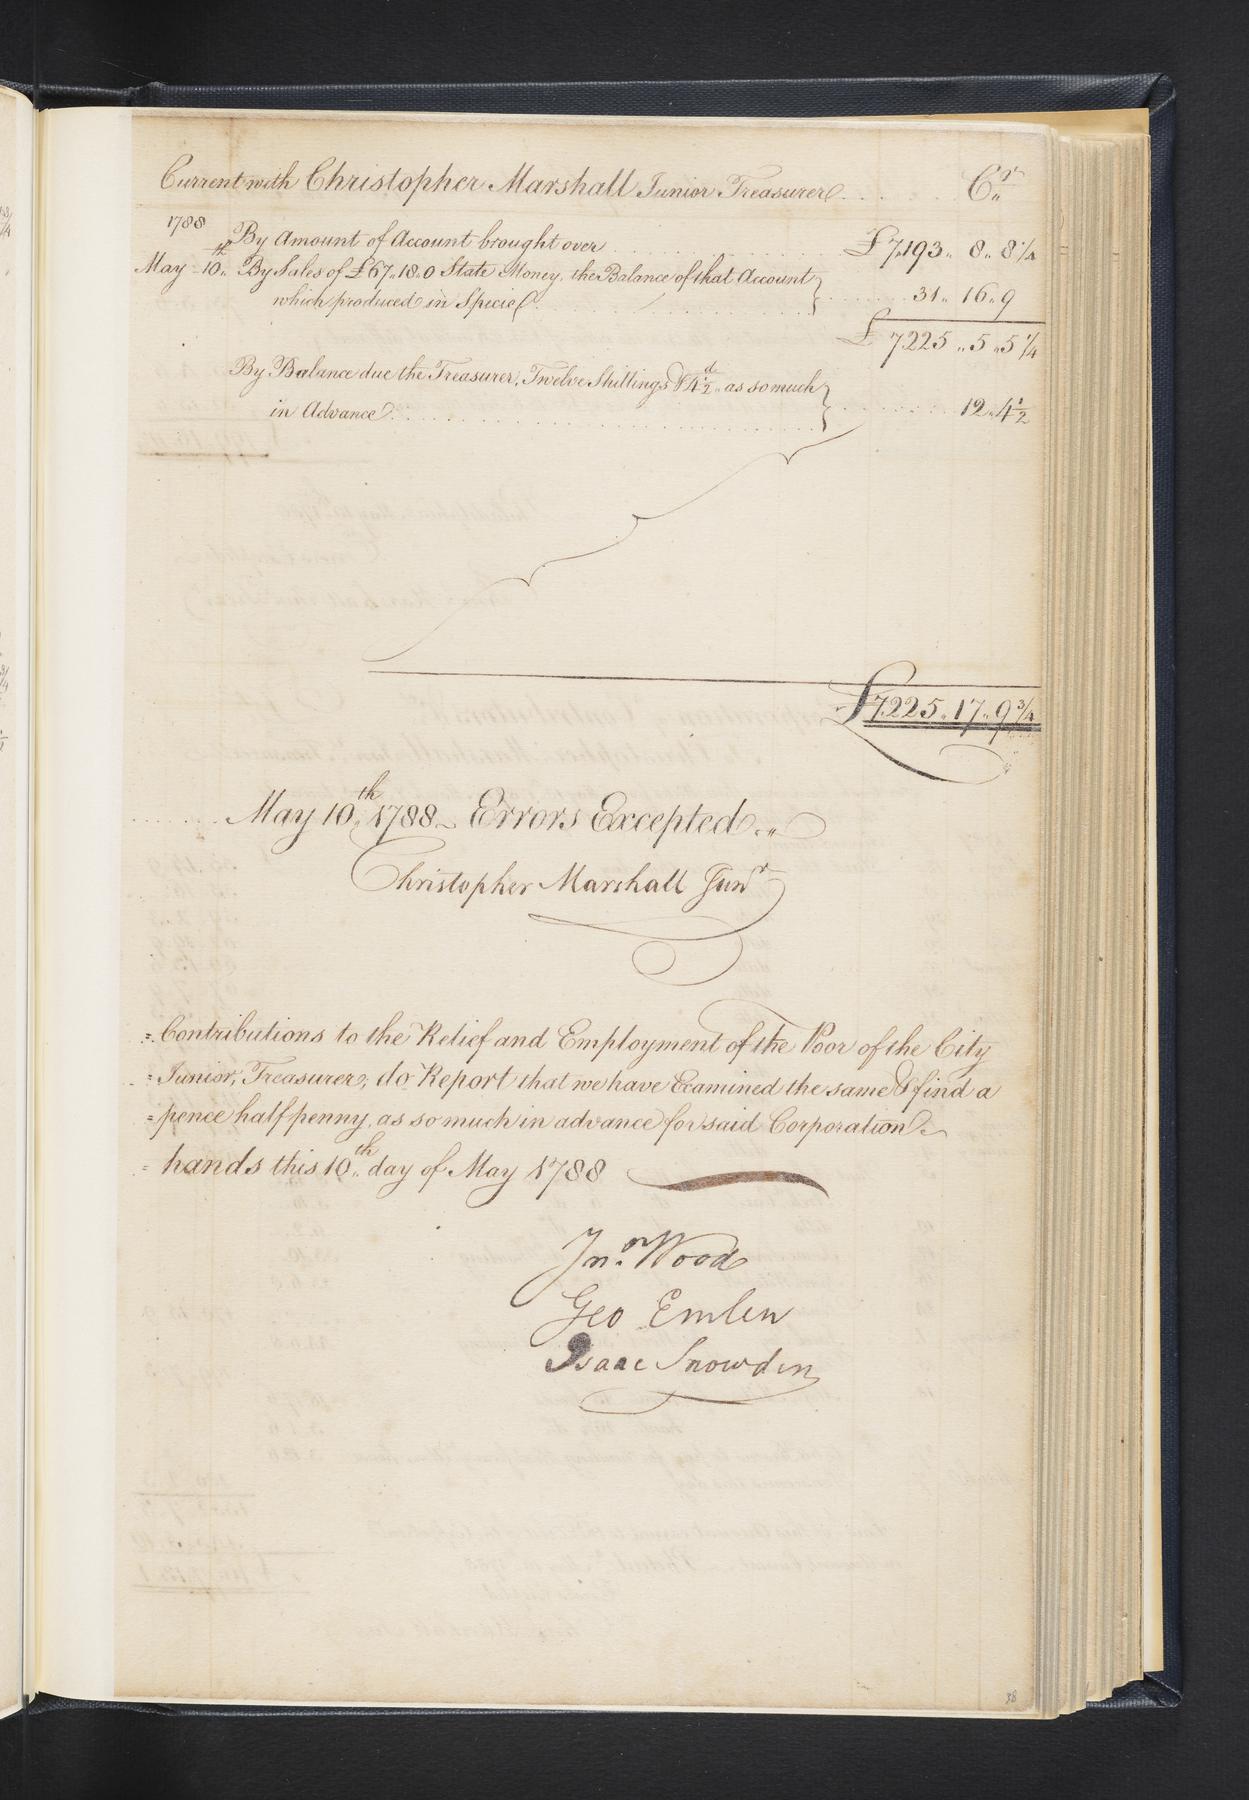 Current with Christopher Marshall Junior Treasurer. . . . . . . Cr
1788 By Amount of Account brought over . . . . . . £7,193,, 8,, 8 1/4
May 10th,, By Sales of £67,,18,,0 State Money, the Balance of that Account
which produced in Specie . . . . . . 31,, 16,, 9
£ 7225 ,, 5 ,, 5 1/4
By Balance due the Treasurer, Twelve Shillings & 4 1/2d,, as so much
in Advance . . . . . . 12,, 4 1/2
£7225,, 17,, 9 3/4
May 10th,, 1788 Errors Excepted
Christopher Marshall Junr
= Contributions to the Relief and Employment of the Poor of the City
= Junior, Treasurer, do Report that we have Examined the same & find a
= pence half penny, as so much in advance for said Corporation
= hands this 10th,, day of May 1788
Jno. Wood
Geo Emlen
Isaac Snowden
38